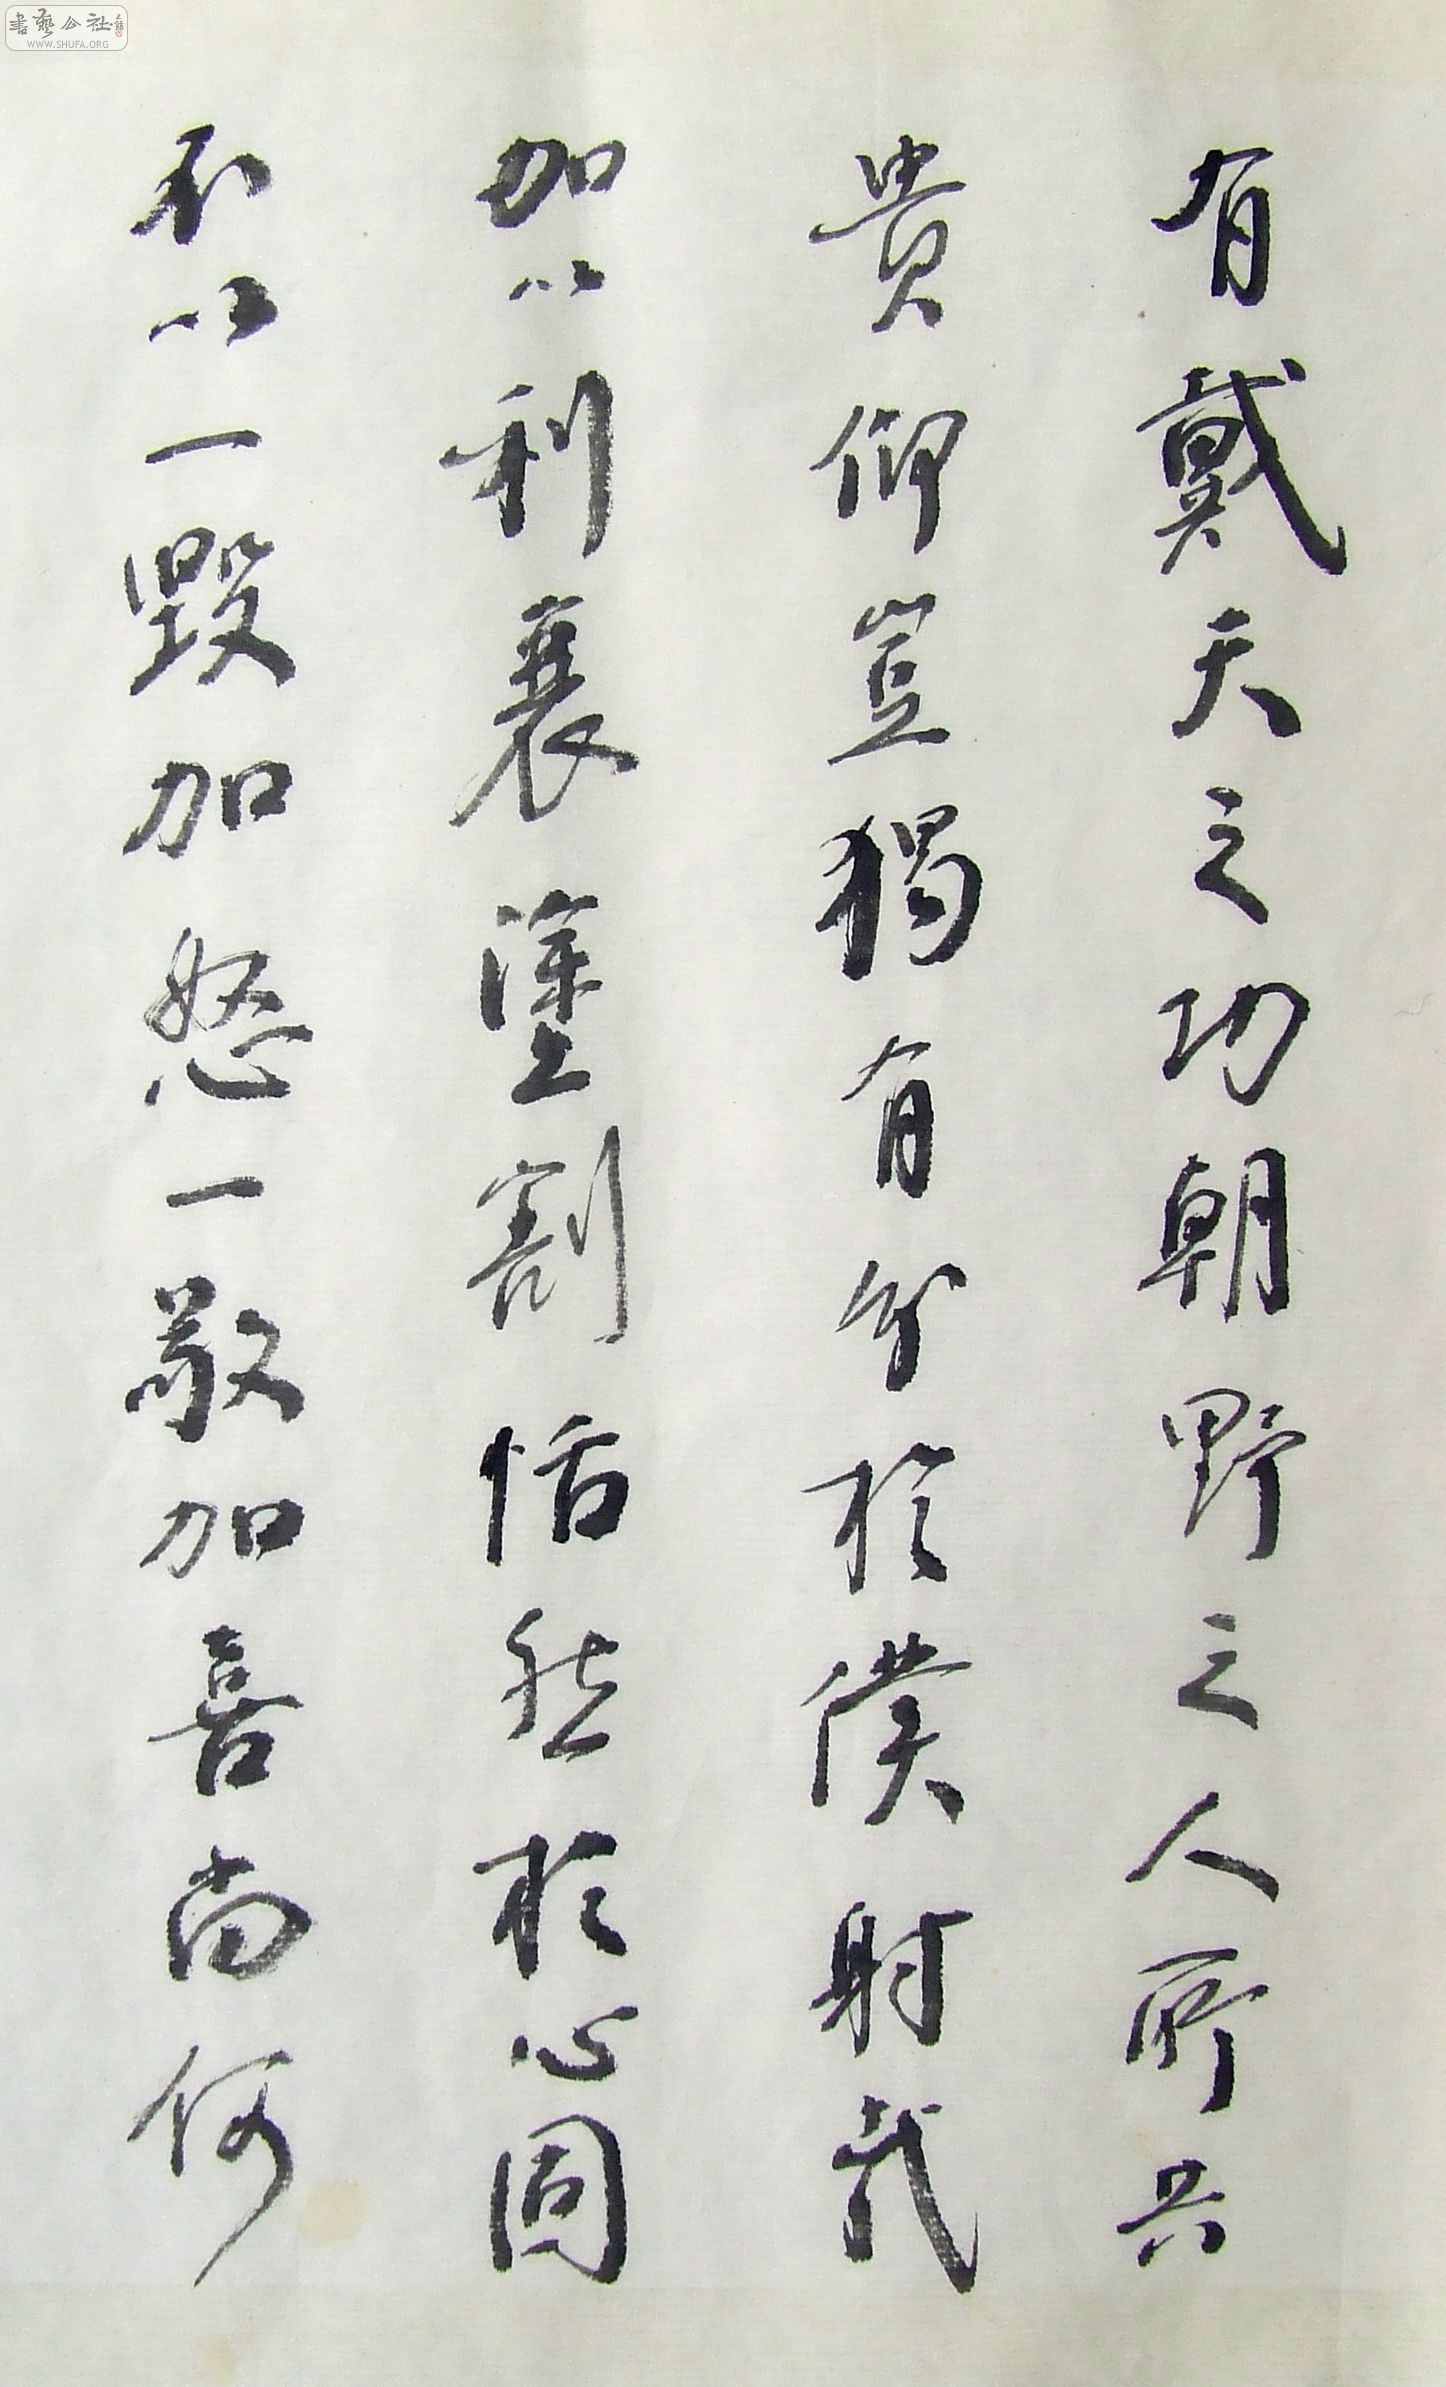 書藝公社
WWW.SHUFA.ORG
有戴天之功朝野之人所共
貴仰豈獨有分於僕射哉
加以利衰塗割恬然於心固
不以一毀加怒一敬加喜尚何